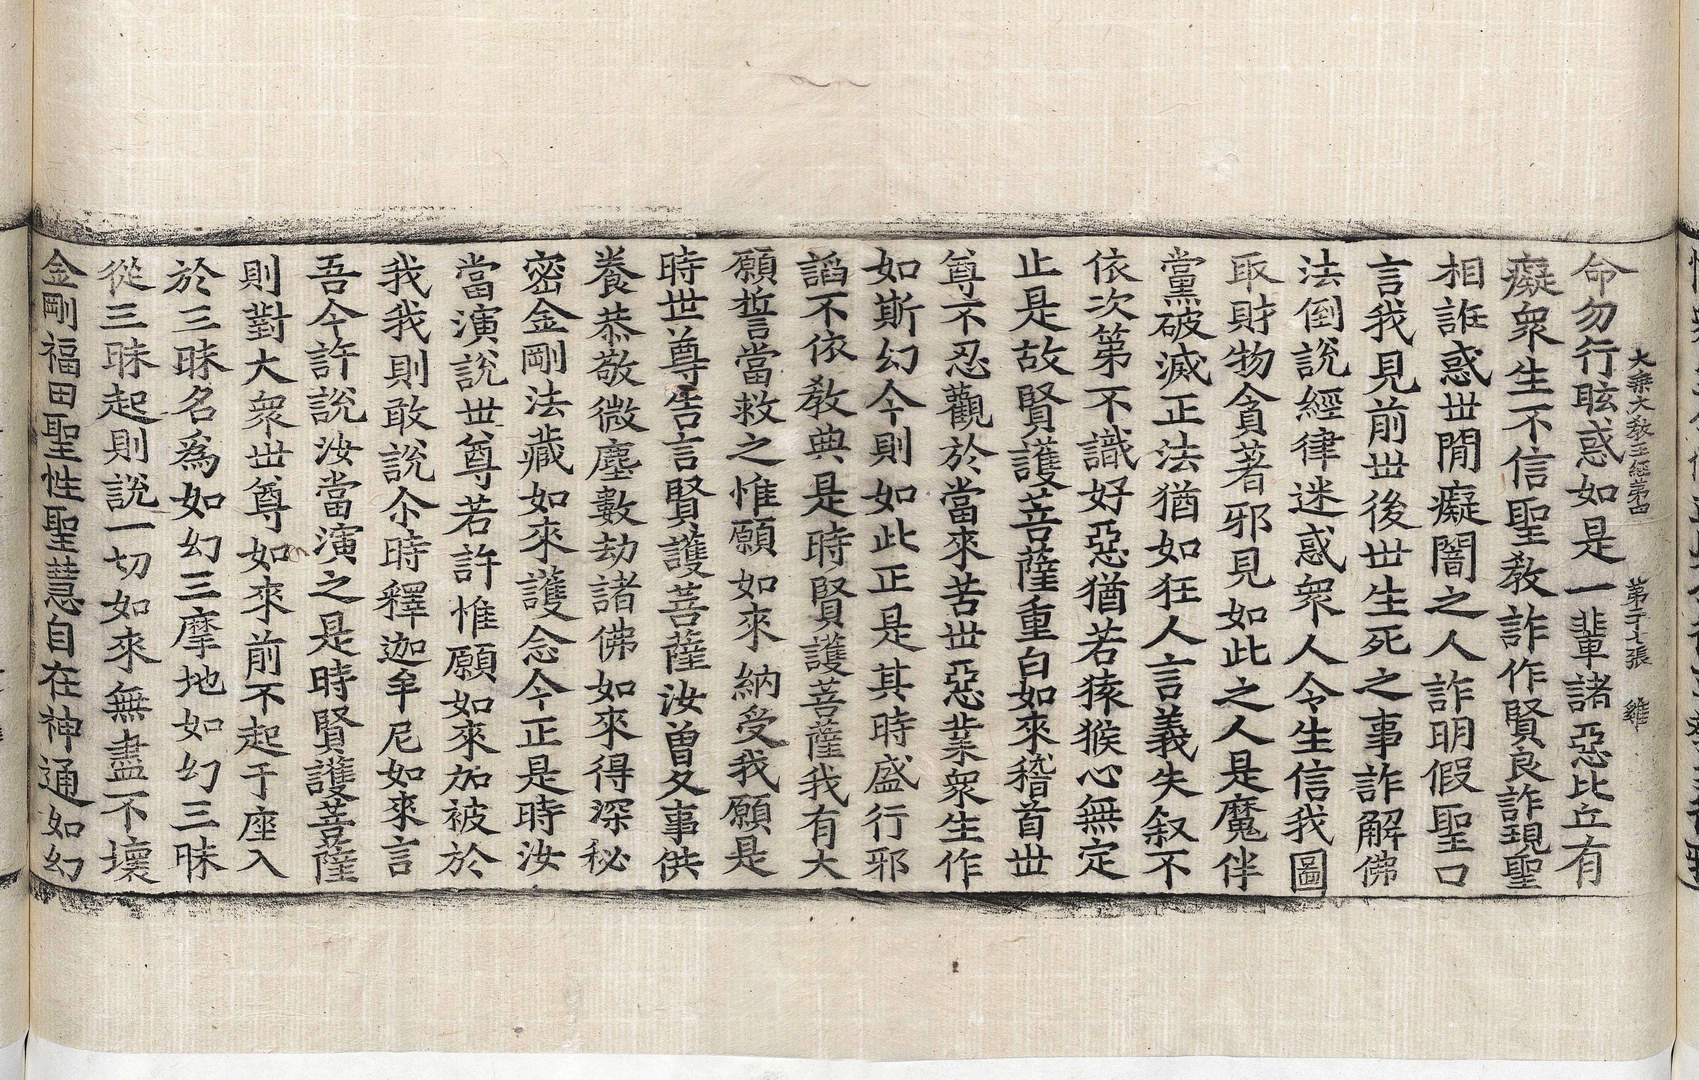 大乘大教王經第四　第二十七張　雞
命勿行眩惑如是一輩諸惡比丘有
癡衆生不信聖教詐作賢良詐現聖
相誑惑世閒癡闇之人詐明假聖口
言我見前世後世生死之事詐解佛
法倒說經律迷惑衆人令生信我圖
取財物貪著邪見如此之人是魔伴
黨破滅正法猶如狂人言義失叙不
依次第不識好惡猶若猿猴心無定
止是故賢護菩薩重白如來稽首世
尊不忍觀於當來苦世惡業衆生作
如斯幻今則如此正是其時盛行邪
諂不依教典是時賢護菩薩我有大
願誓當救之惟願如來納受我願是
時世尊告言賢護菩薩汝曾久事供
養恭敬微塵數劫諸佛如來得深秘
密金剛法藏如來護念今正是時汝
當演說世尊若許惟願如來加被於
我我則敢說尒時釋迦牟尼如來言
吾今許說汝當演之是時賢護菩薩
則對大衆世尊如來前不起于座入
於三昧名為如幻三摩地如幻三昧
從三昧起則說一切如來無盡不壞
金剛福田聖性聖慧自在神通如幻